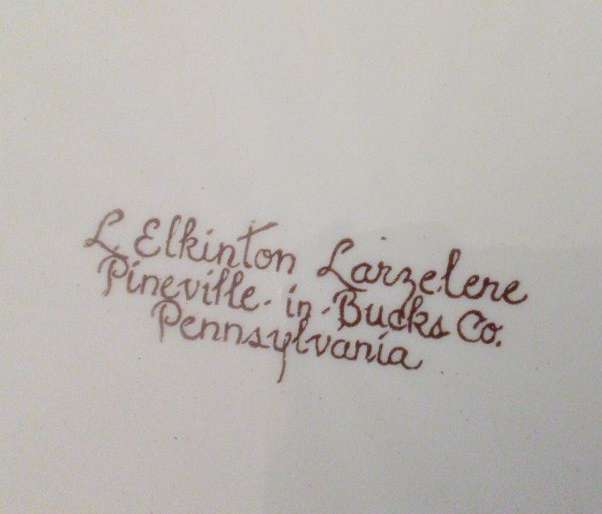 L Elkinton Larzelere
Pineville-in-Bucks Co.
Pennsylvania